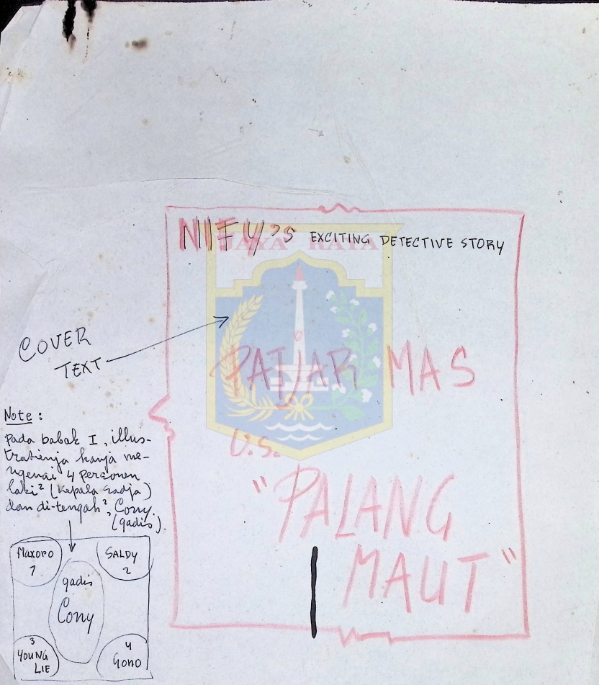 NIFU's EXCITING DETECTIVE STORY
JAYA RAYA
COVER
TEXT
PADJAR MAS
V.S.
"PALANG
MAUT"
Note :
Pada babak I, illus-
trasinja hanja me-
ngenai 4 personen
laki² (kepala sadja)
dan di-tengah², Cony.
(gadis).
Maxoro
1
SALDY
2
gadis
Cony
3
YOUNG
LIE
4
Gono